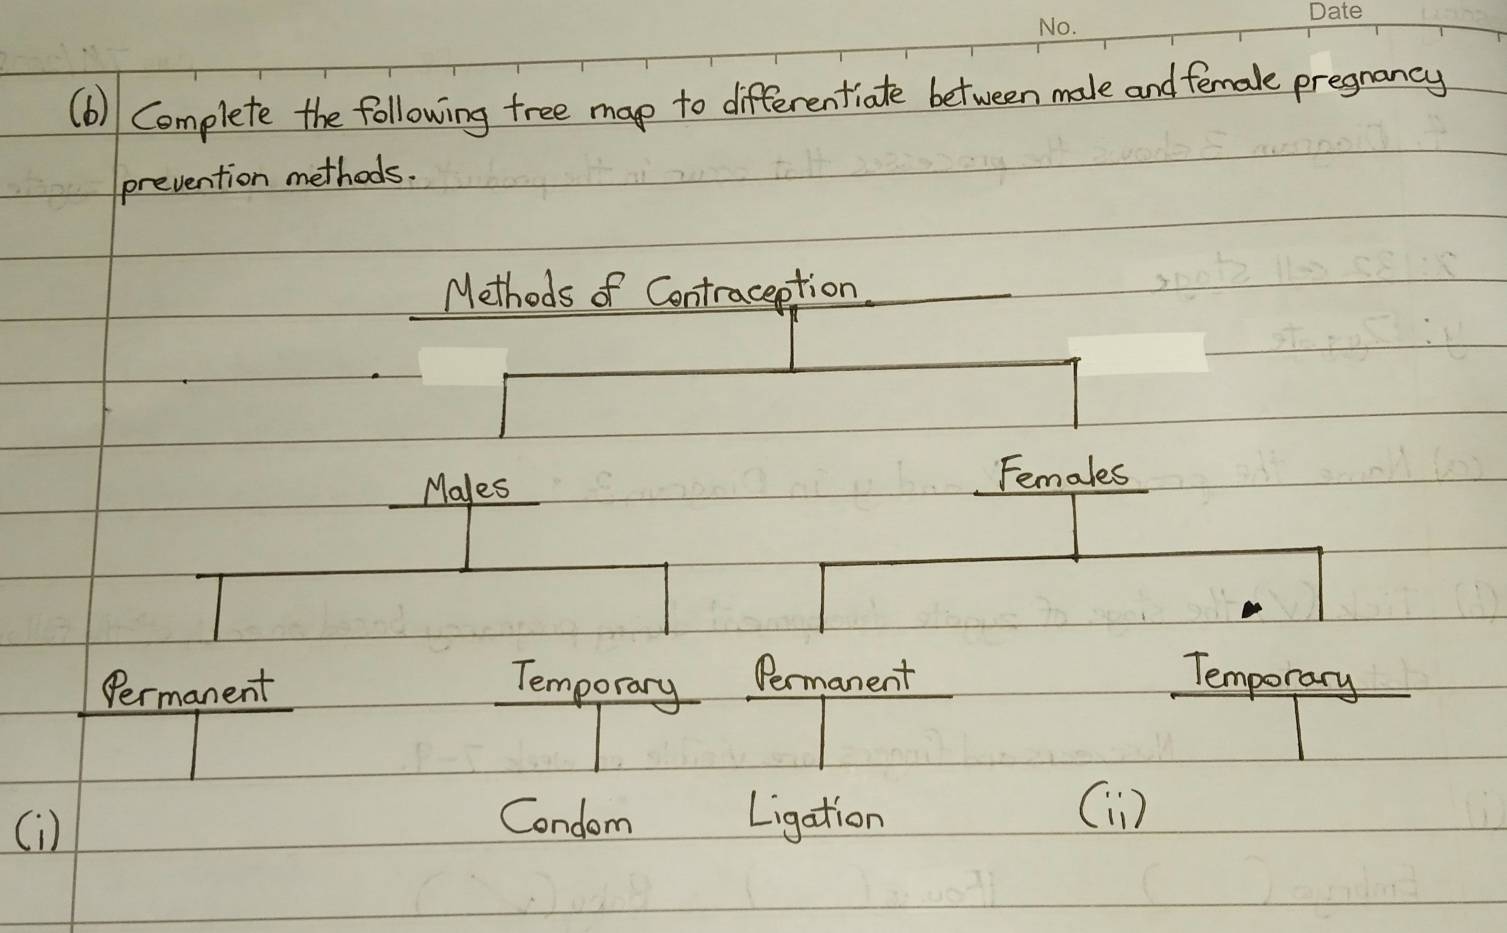 No. Date
(b) Complete the following tree map to differentiate between male and female pregnancy
prevention methods.
Methods of Contraception
Males Females
Permanent Temporary Permanent Temporary
(i) Condom Ligation (ii)